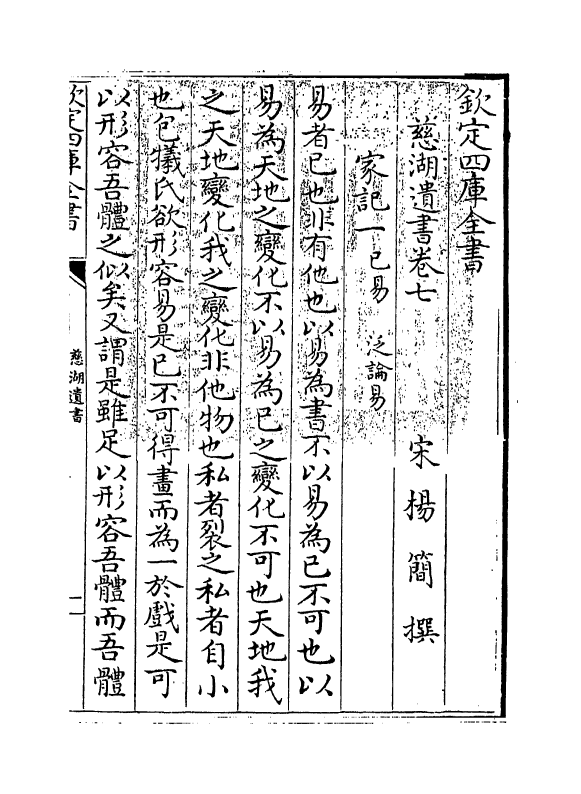 欽定四庫全書
慈湖遺書卷七
宋 楊 簡 撰
家記一 己易 泛論易
易者已也非有他也以易為書不以易為已不可也以
易為天地之變化不以易為已之變化不可也天地我
之天地變化我之變化非他物也私者裂之私者自小
也包犧氏欲形容易是已不可得畫而為一於戲是可
以形容吾體之似矣又謂是雖足以形容吾體而吾體
欽定四庫全書
慈湖遺書
一